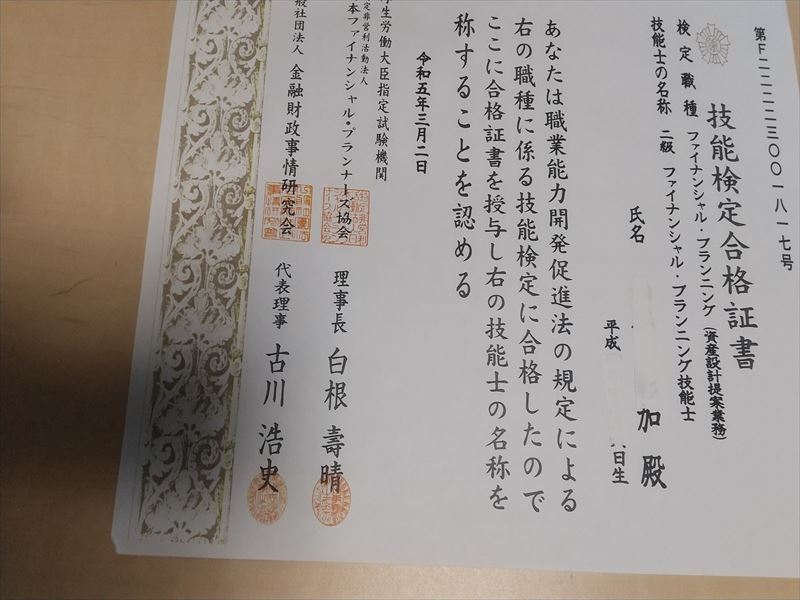 第F二二二二三〇〇一八一七号
技能検定合格証書
検定職種 ファイナンシャル・プランニング(資産設計提案業務)
技能士の名称 二級 ファイナンシャル・プランニング技能士
氏名 加 殿
平成 日生
あなたは職業能力開発促進法の規定による
右の職種に係る技能検定に合格したので
ここに合格証書を授与し右の技能士の名称を
称することを認める
令和五年三月二日
生労働大臣指定試験機関
定非営利活動法人
本ファイナンシャル・プランナーズ協会 理事長 白根 壽晴
般社団法人 金融財政事情研究会 代表理事 古川 浩史